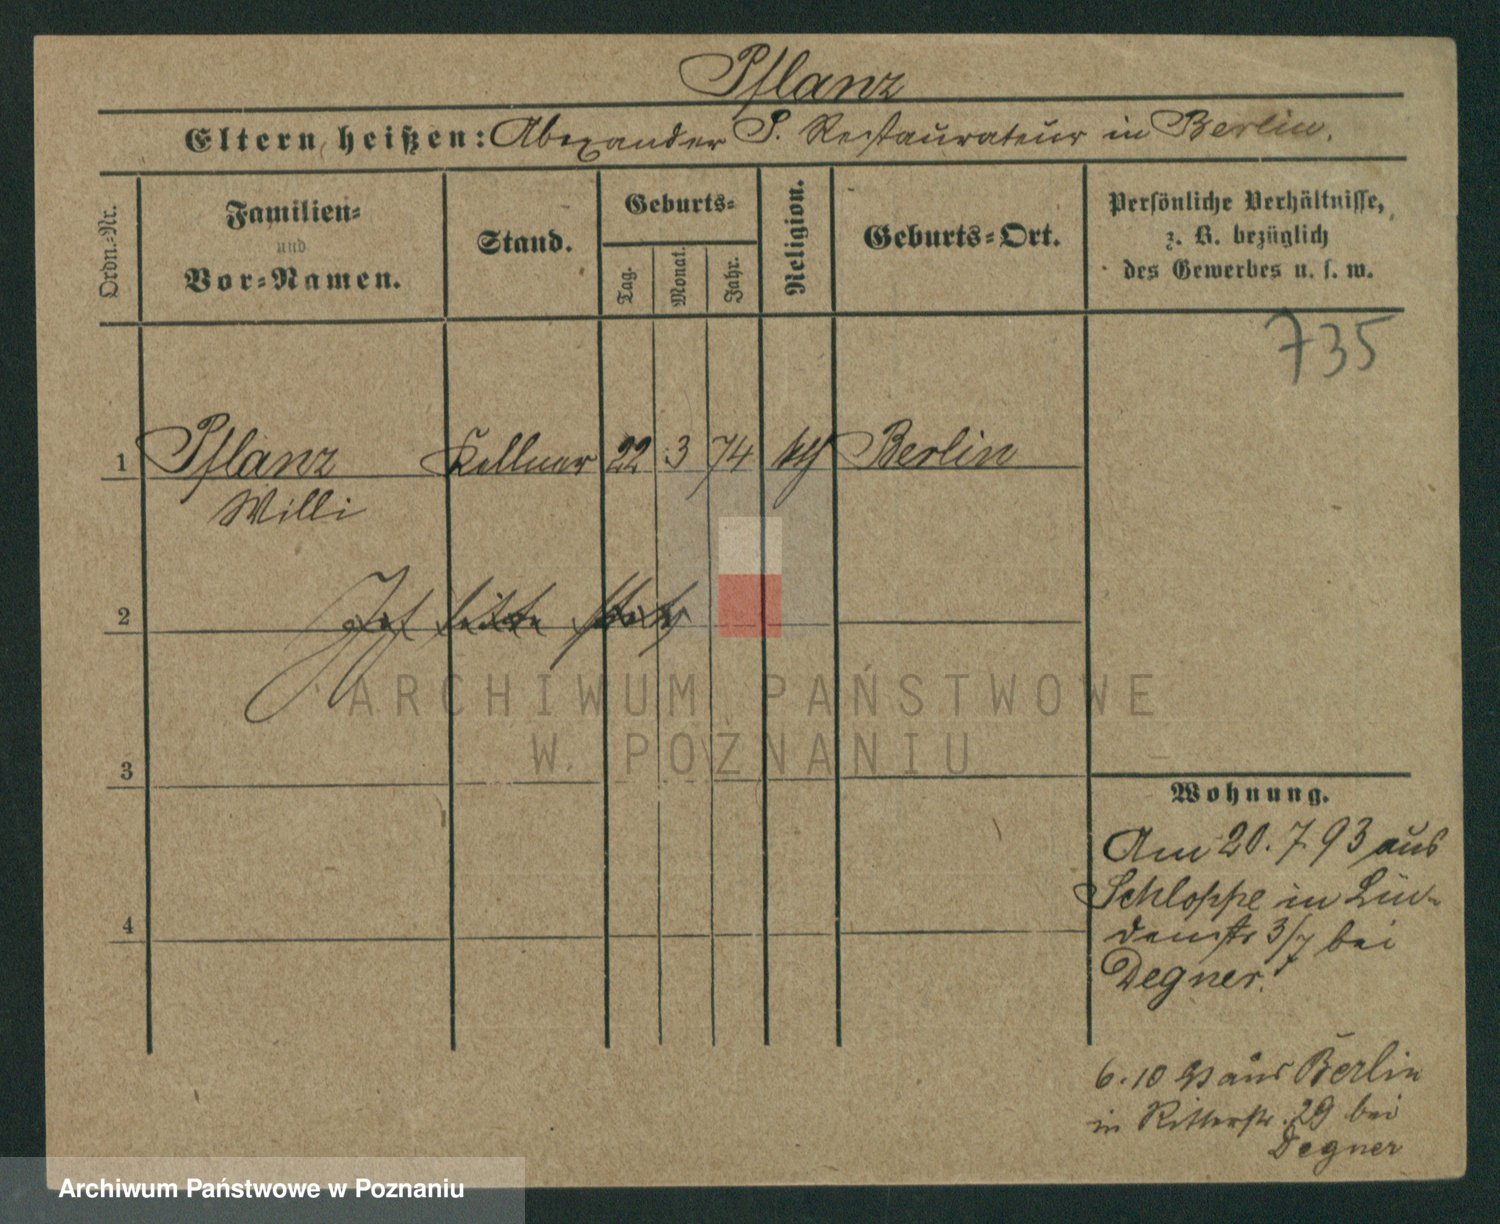 Pflanz
Eltern heißen: Alexander P. Restaurateur in Berlin.
Ordn.-Nr.
Familien-
und
Vor-Namen.
Stand.
Geburts-
Tag.
Monat.
Jahr.
Religion.
Geburts-Ort.
Persönliche Verhältnisse,
z. B. bezüglich
des Gewerbes u. s. w.
735
1 Pflanz Kellner 22 3 74 kth Berlin
Willi
2
3
4
ARCHIWUM PAŃSTWOWE
W POZNANIU
Wohnung.
Am 20.7.93 aus
Schloppe in Lin-
denstr 3/7 bei
Degner.
6.10 93 aus Berlin
in Ritterstr. 29 bei
Degner
Archiwum Państwowe w Poznaniu